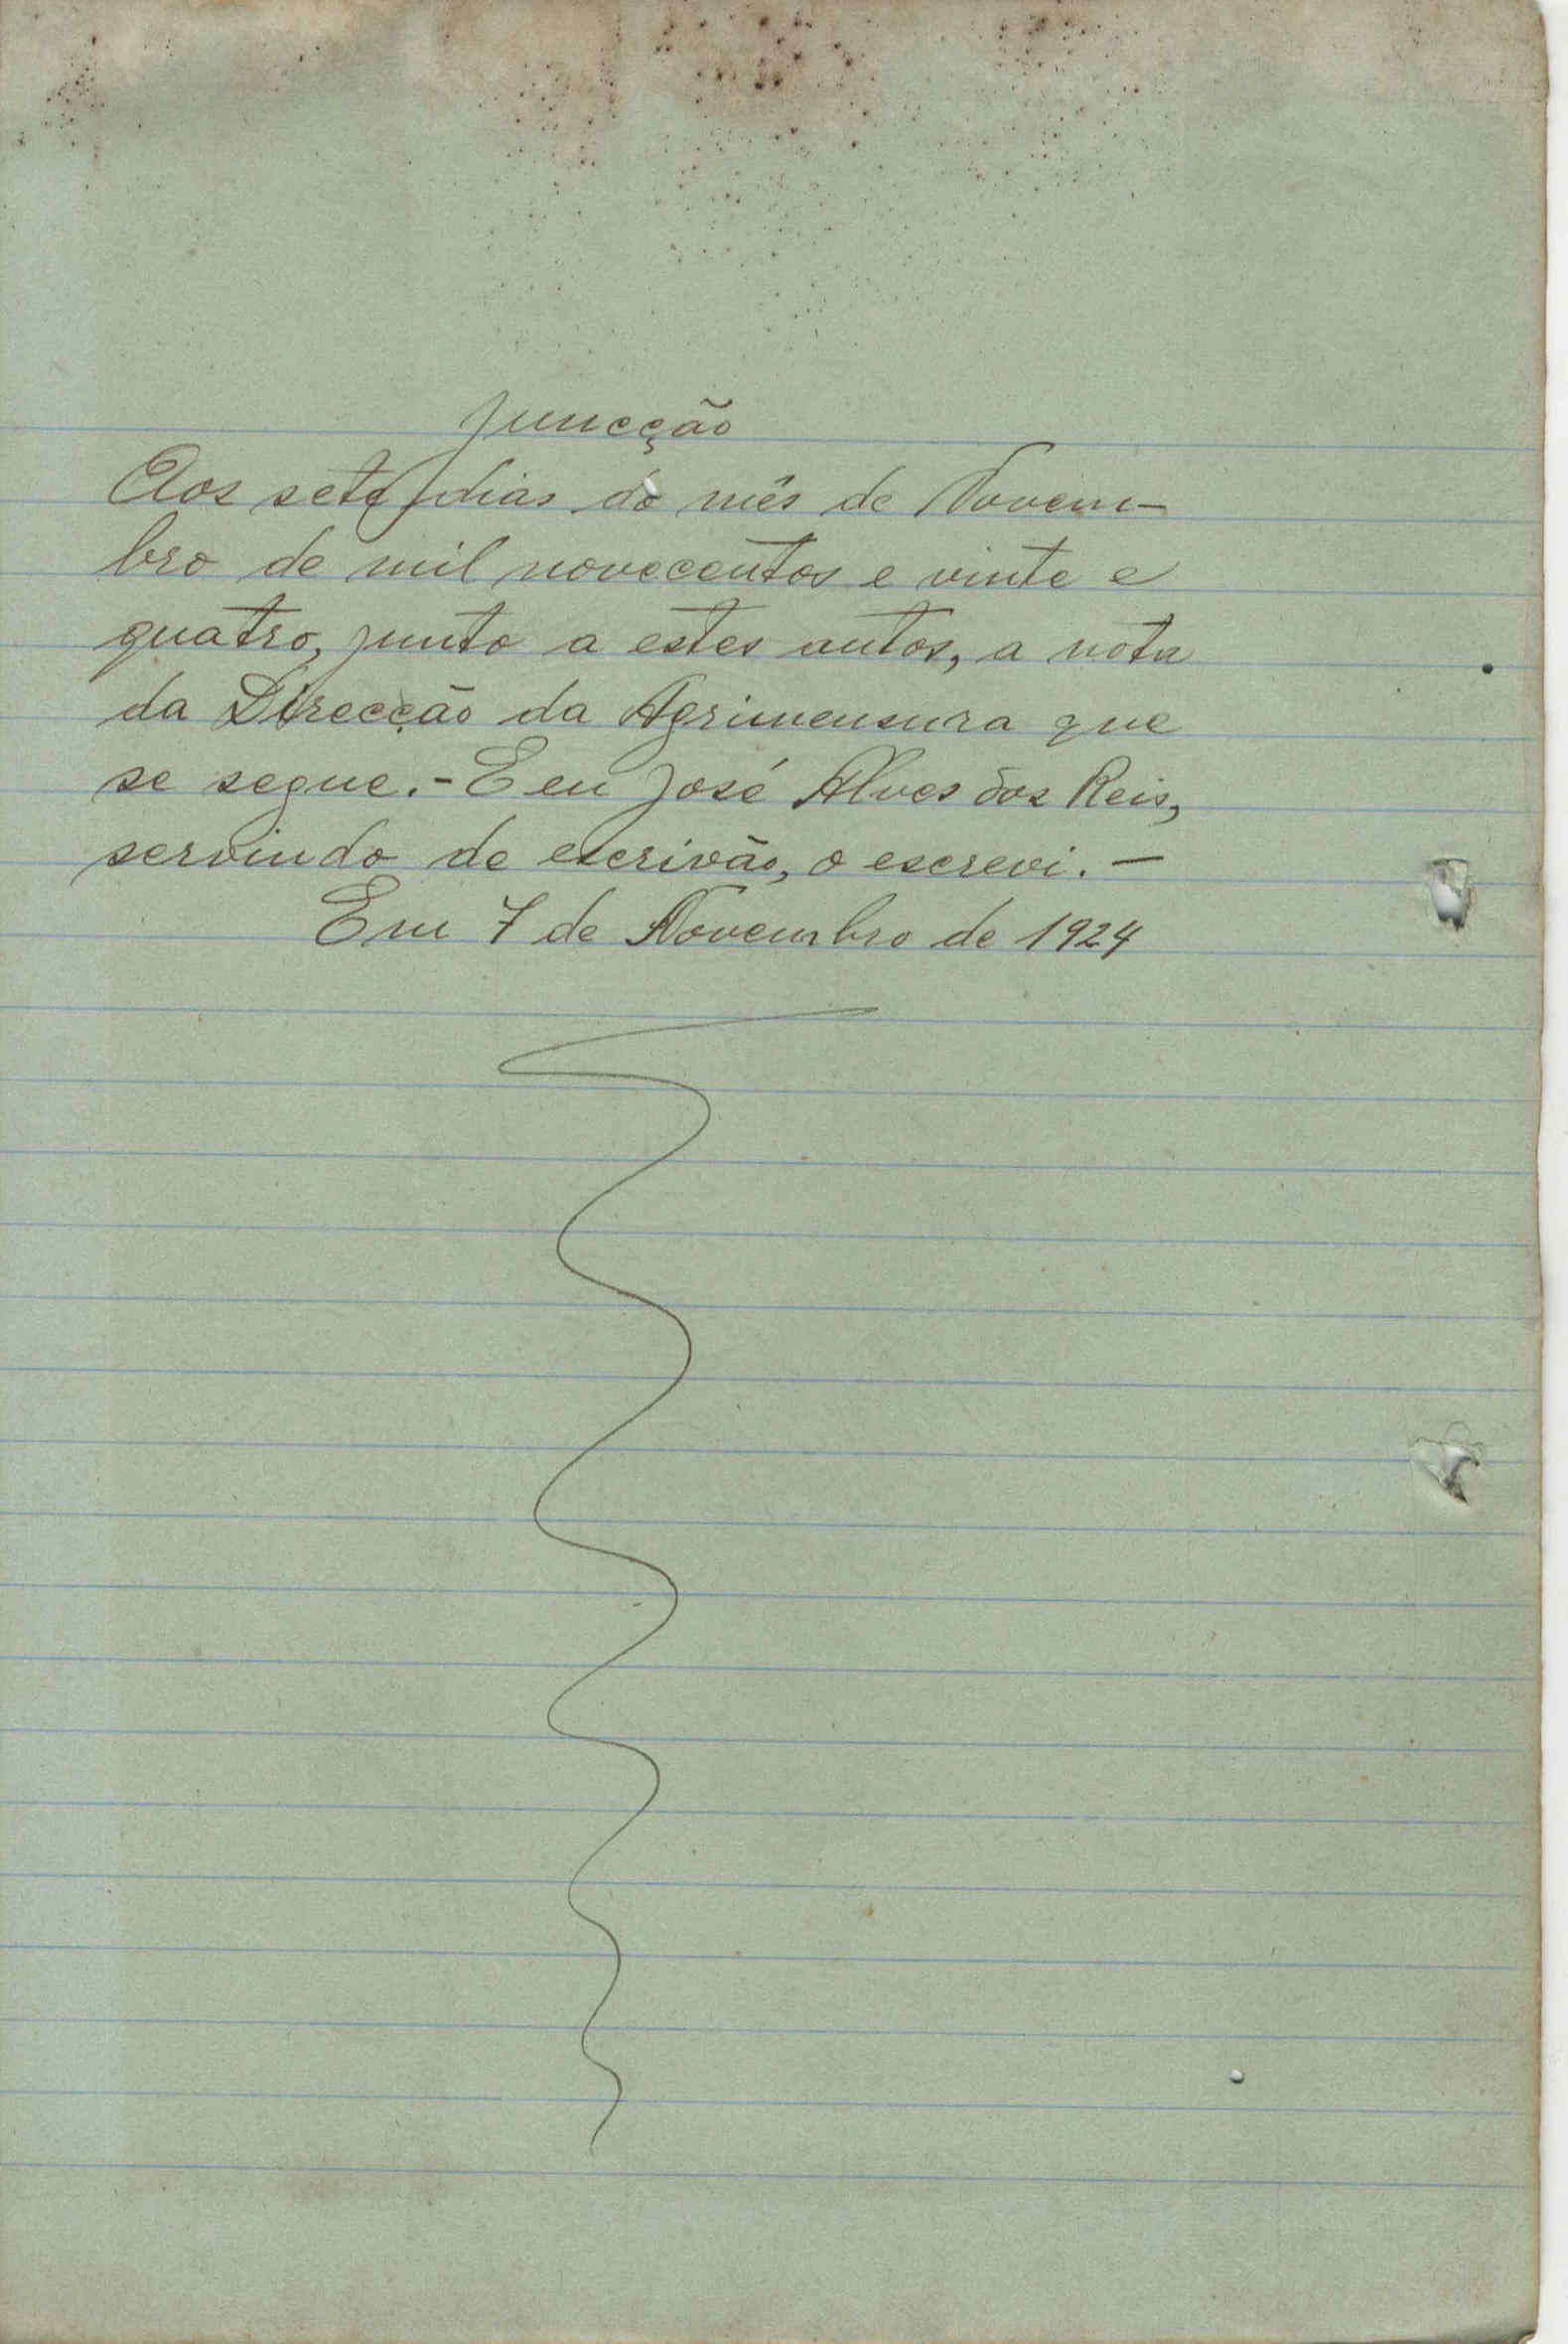 Juncção
Aos sete dias do mês de Novem-
bro de mil novecentos e vinte e
quatro, junto a estes autos, a nota
da Direcção da Agrimensura que
se segue.- E eu José Alves dos Reis,
servindo de escrivão, o escrevi. -
Em 7 de Novembro de 1924